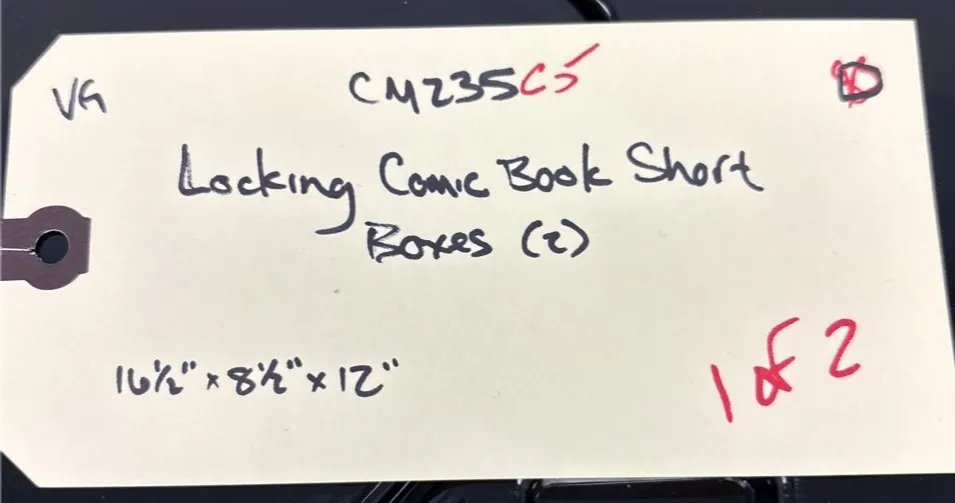 VG CM235C5 D
Locking Comic Book Short
Boxes (2)
16½" x 8½" x 12"
1 of 2